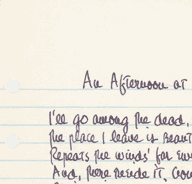 An Afternoon at
I'll go among the dead,
The place I leave is Beaut
Repeats the winds' far
And, here beside it,